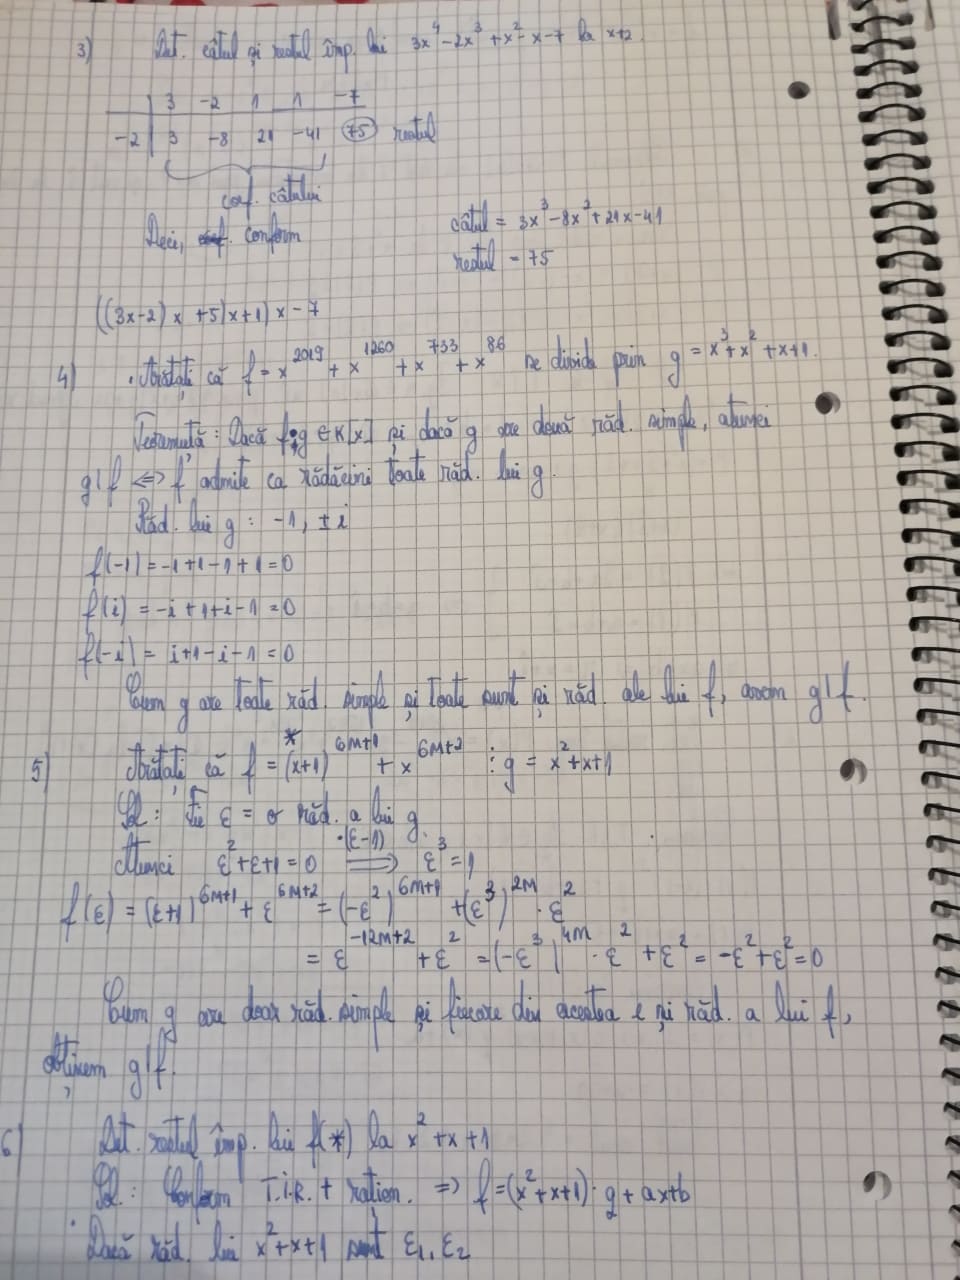 3) Det. câtul și restul împ. lui 3x⁴-2x³+x²-x-7 la x+2.
3 -2 1 1 -7
-2 3 -8 21 -41 75 restul
coef. câtului
câtul = 3x³-8x²+21x-41
Deci, conform
restul = 75
((3x-2)x +5)x+1)x-7
4) Arătați că f = x²⁰¹⁹ + x¹²⁶⁰ + x⁷³³ + x⁸⁶ se divide prin g = x³+x²+x+1.
Teoremuță: Dacă f,g ∈ K[x] și dacă g are două răd. simple, atunci
g|f ⟺ f admite ca rădăcini toate răd. lui g.
Răd. lui g: -1, ±i
f(-1) = -1+1-1+1=0
f(i) = -i+1+i-1=0
f(-i) = i+1-i-1=0
Cum g are toate răd. simple și toate sunt și răd. ale lui f, avem g|f.
5) Arătați că f =* (x+1)⁶ᵐ⁺¹ + x⁶ᵐ⁺² ⋮ g = x²+x+1
Sol: Fie ε = o răd. a lui g.
Atunci ε²+ε+1=0 ⟹ ·(ε-1) ε³=1
f(ε) = (ε+1)⁶ᵐ⁺¹ + ε⁶ᵐ⁺² = (-ε²)⁶ᵐ⁺¹ + (ε³)²ᵐ · ε²
= ε⁻¹²ᵐ⁺² + ε² = (-ε³)⁴ᵐ · ε² + ε² = -ε²+ε²=0
Cum g are doar răd. simple și fiecare din acestea e și răd. a lui f,
obținem g|f.
6) Det. restul împ. lui f(*) la x²+x+1
Sol: Conform T.Î.R. + ration. ⟹ f=(x²+x+1)·g+ax+b
Dacă răd. lui x²+x+1 sunt ε₁, ε₂